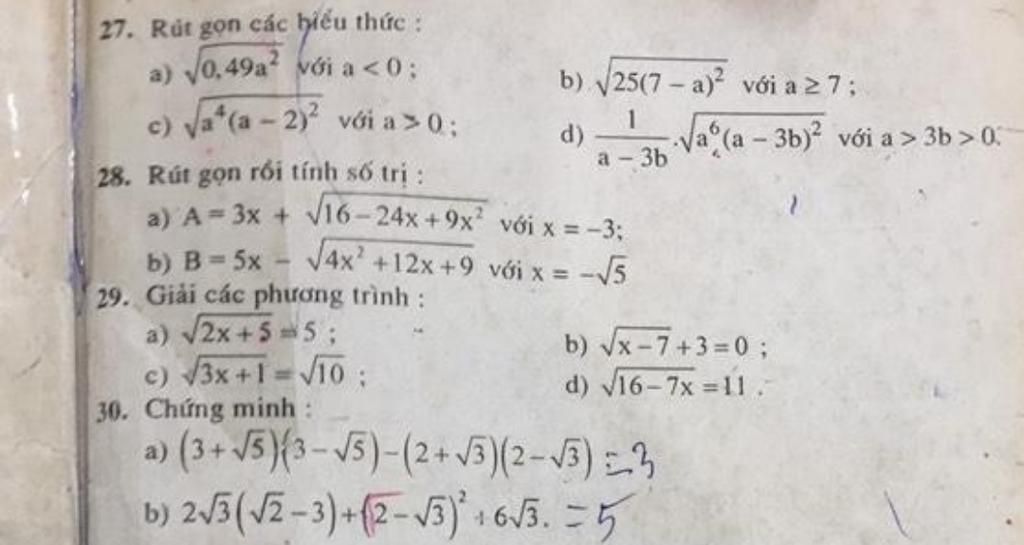 27. Rút gọn các biểu thức :
a) √0,49a² với a < 0 ; b) √25(7 – a)² với a ≥ 7 ;
c) √a⁴(a – 2)² với a > 0 ; d) 1/(a – 3b) . √a⁶(a – 3b)² với a > 3b > 0.
28. Rút gọn rồi tính số trị :
a) A = 3x + √16 – 24x + 9x² với x = –3;
b) B = 5x – √4x² + 12x + 9 với x = –√5
29. Giải các phương trình :
a) √2x + 5 = 5 ; b) √x – 7 + 3 = 0 ;
c) √3x + 1 = √10 ; d) √16 – 7x = 11 .
30. Chứng minh :
a) (3 + √5)(3 – √5) – (2 + √3)(2 – √3) = 3
b) 2√3(√2 – 3) + (√2 – √3)² + 6√3. = 5